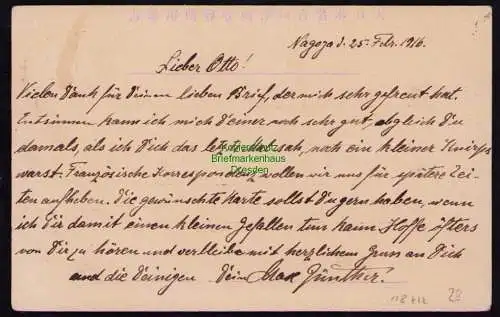 Nagoya d. 25. Febr. 1916.
Lieber Otto!
Vielen Dank für Deinen lieben Brief, der mich sehr gefreut hat.
Entsinnen kann ich mich Deiner noch sehr gut, obgleich Du
damals, als ich Dich das letzte Mal sah, noch ein kleiner Knirps
warst. Französische Korrespondenz wollen wir uns für spätere Zei-
ten aufheben. Die gewünschte Karte sollst Du gern haben, wenn
ich Dir damit einen kleinen Gefallen tun kann. Hoffe öfters
von Dir zu hören und verbleibe mit herzlichem Gruss an Dich
und die Deinigen Dein Max Günther.
Briefmarkenhaus
Dresden